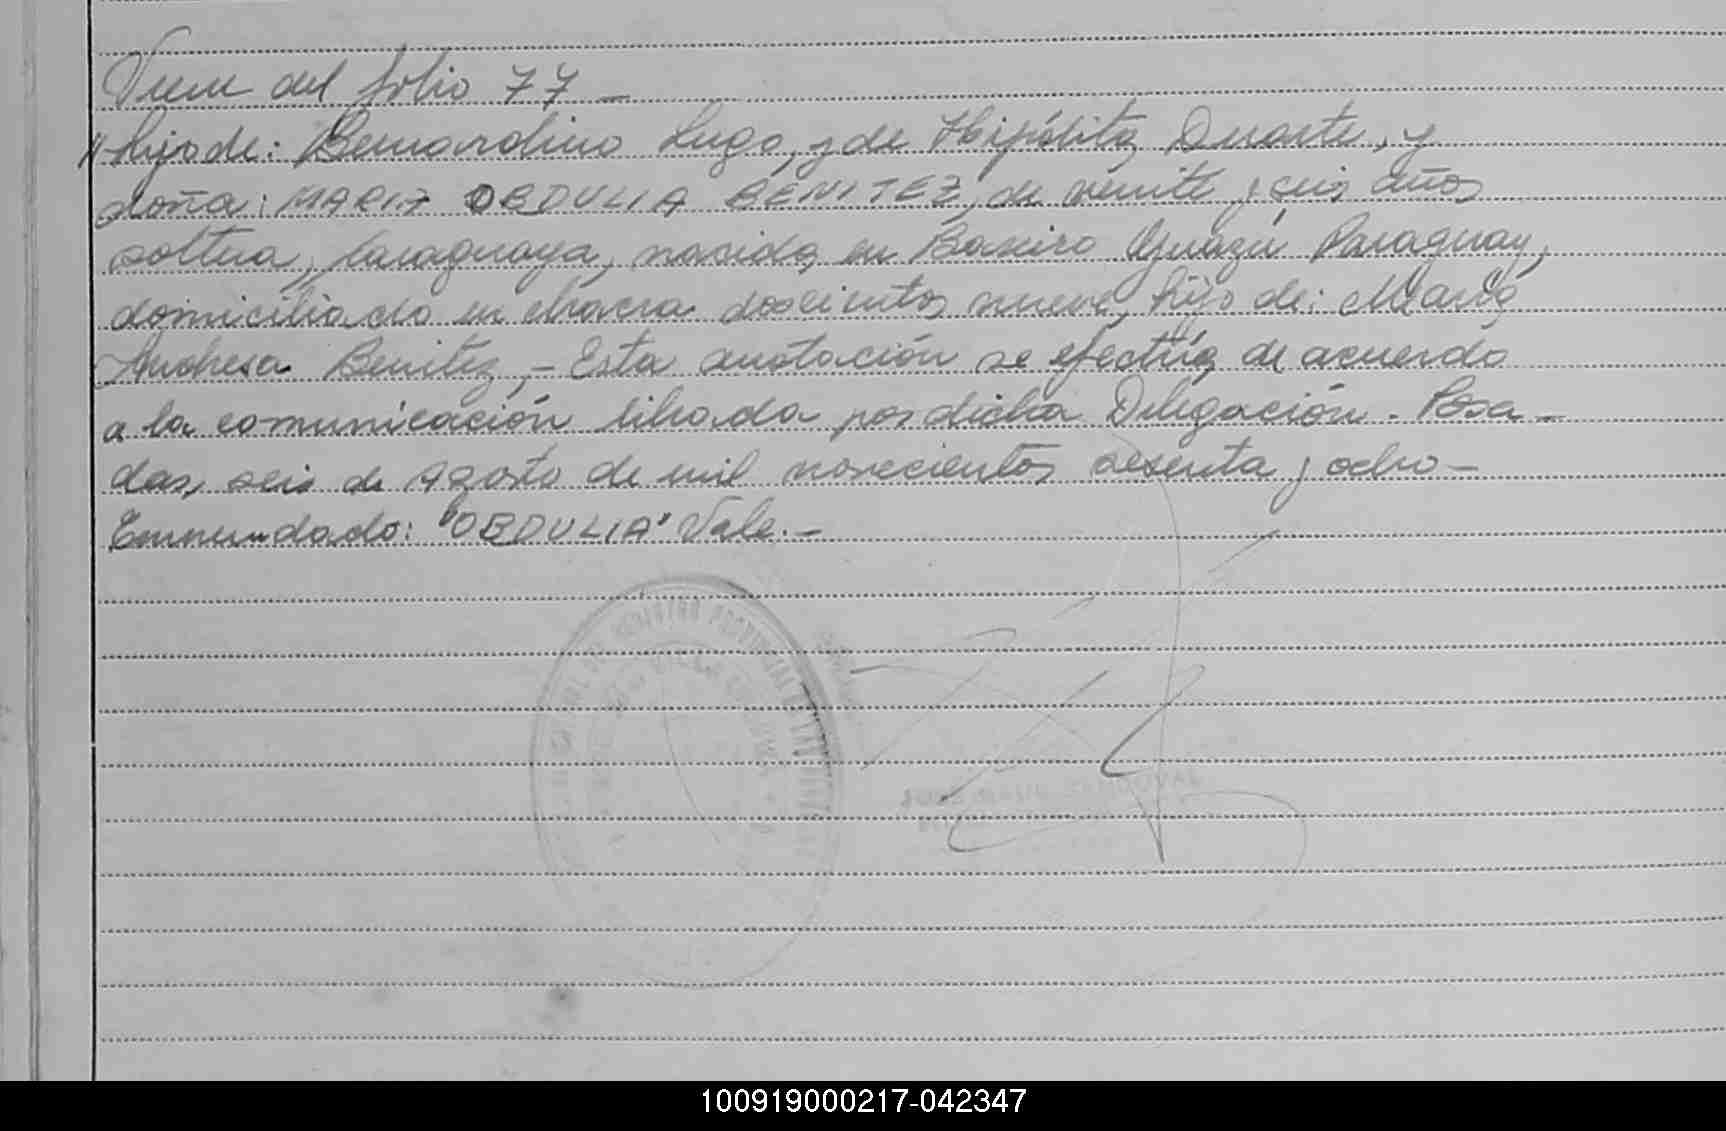 Viene del folio 77 _
// hijo de: Bernardino Lugo, y de Hipólita Duarte, y
doña: MARIA OBDULIA BENITEZ, de veinte y seis años
soltera, Paraguaya, nacida en Barrero Guazú Paraguay,
domiciliado en chacra doscientos nueve, hijo de: María
Andresa Benitez, - Esta anotación se efectúa de acuerdo
a la comunicación librada por dicha Delegación. Posa-
das, seis de Agosto de mil novecientos sesenta y ocho -
Enmendado: "OBDULIA" Vale. -
REGISTRO PROVINCIAL DE
SANDOVAL
100919000217-042347